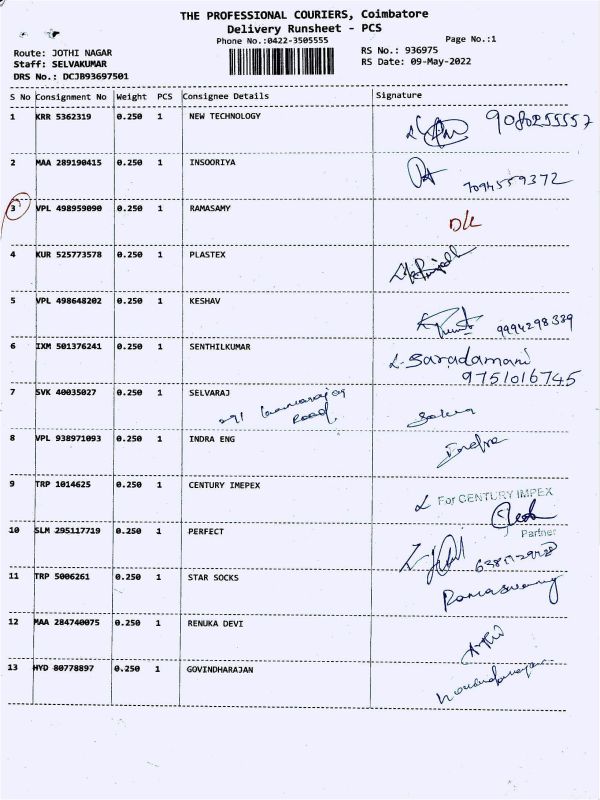 THE PROFESSIONAL COURIERS, Coimbatore
Delivery Runsheet - PCS
Phone No.:0422-3505555 Page No.:1
Route: JOTHI NAGAR RS No.: 936975
Staff: SELVAKUMAR RS Date: 09-May-2022
DRS No.: DCJB93697501
S No Consignment No Weight PCS Consignee Details Signature
1 KRR 5362319 0.250 1 NEW TECHNOLOGY 9080255557
2 MAA 289190415 0.250 1 INSOORIYA
7094559372
3 VPL 498959090 0.250 1 RAMASAMY
D/L
4 KUR 525773578 0.250 1 PLASTEX
5 VPL 498648202 0.250 1 KESHAV
9994298339
6 IXM 501376241 0.250 1 SENTHILKUMAR
Saradamani
9751016745
7 SVK 40035027 0.250 1 SELVARAJ
291 Kamarajar
Road.
8 VPL 938971093 0.250 1 INDRA ENG
Indra
9 TRP 1014625 0.250 1 CENTURY IMEPEX
For CENTURY IMPEX
10 SLM 295117719 0.250 1 PERFECT
Partner
11 TRP 5006261 0.250 1 STAR SOCKS
Ramaswamy
12 MAA 284740075 0.250 1 RENUKA DEVI
13 HYD 80778897 0.250 1 GOVINDHARAJAN